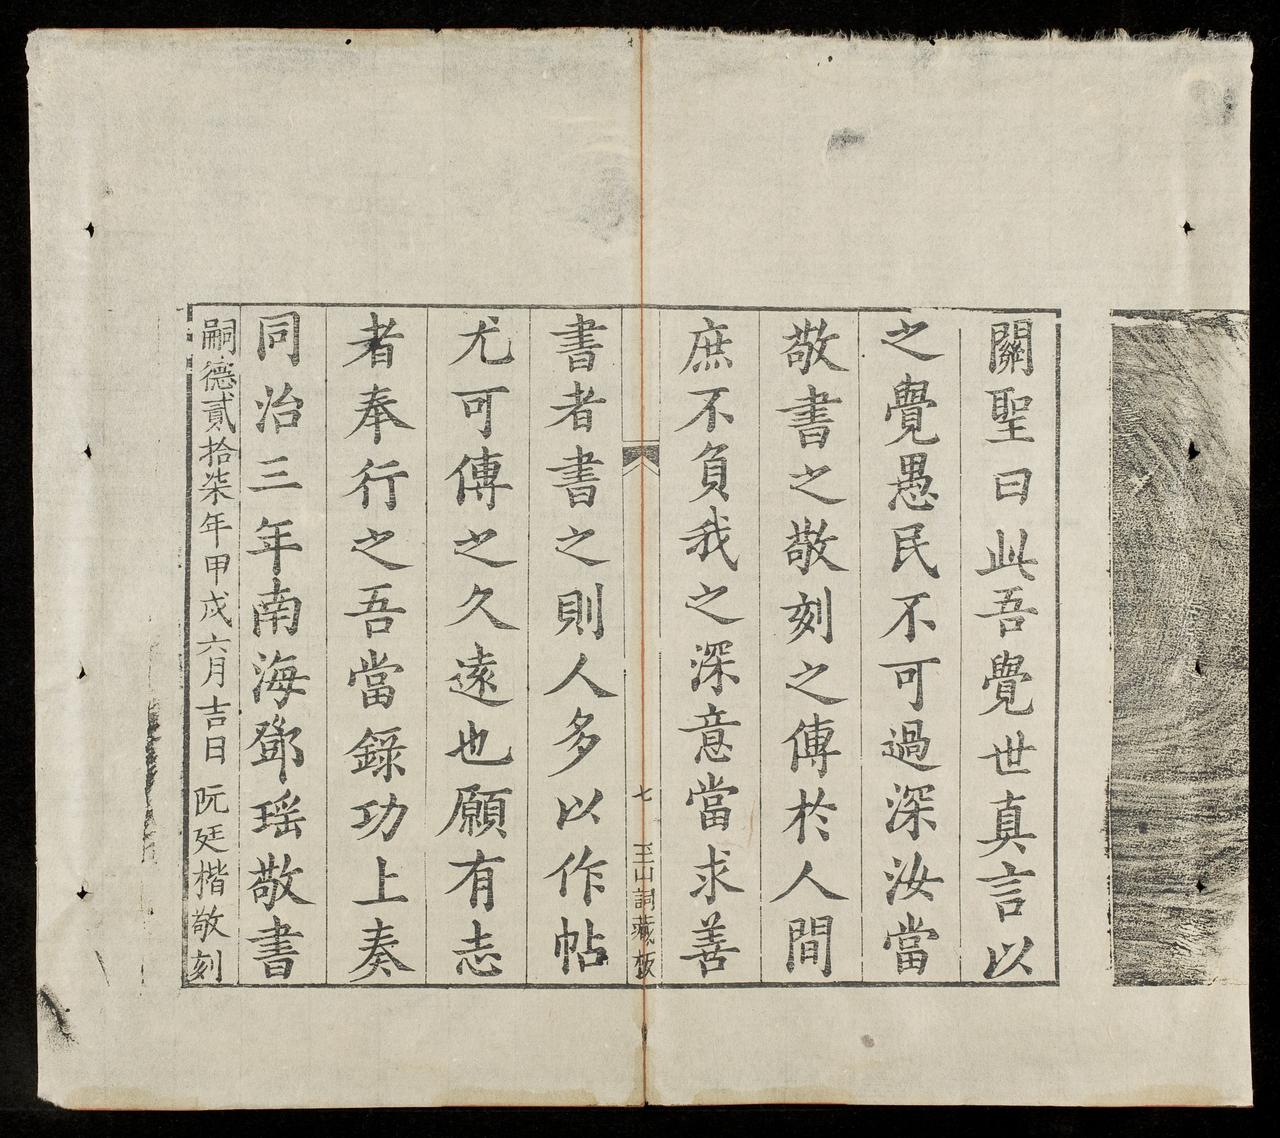 關聖曰此吾覺世真言以
之覺愚民不可過深汝當
敬書之敬刻之傳於人間
庶不負我之深意當求善
七 玉山祠藏板
書者書之則人多以作帖
尤可傳之久遠也願有志
者奉行之吾當錄功上奏
同治三年南海鄧瑶敬書
嗣德貳拾柒年甲戌六月吉日阮廷楷敬刻